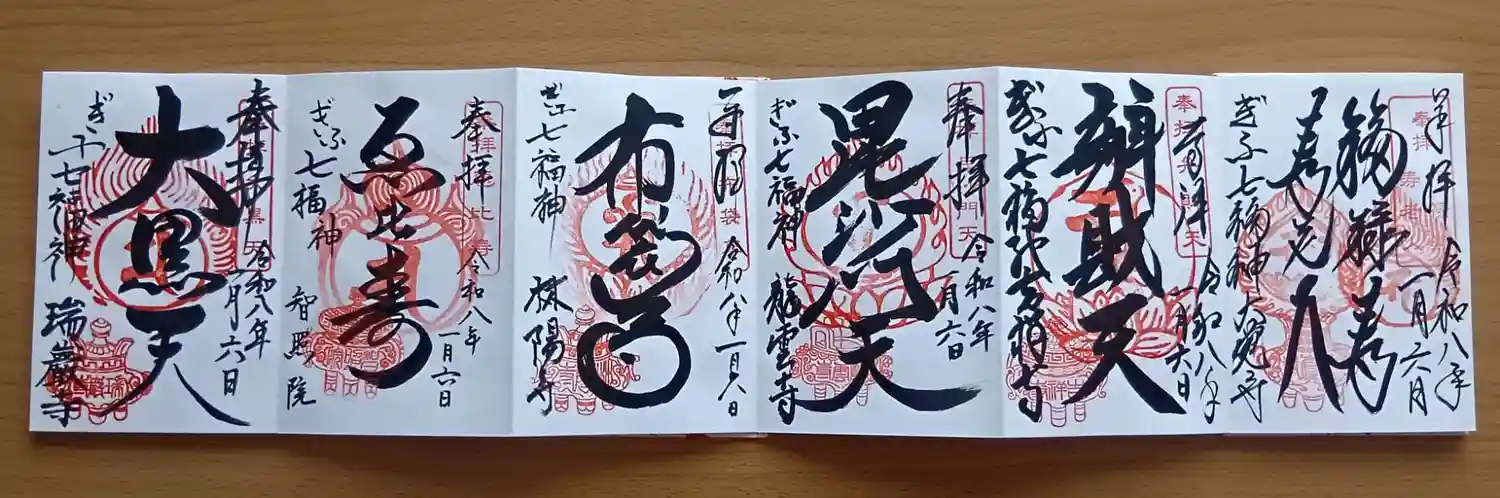 奉拝
令和八年
一月六日
福禄寿
寿老人
ぎふ七福神 大覚寺
奉拝
令和八年
一月六日
辨財天
ぎふ七福神 吉祥寺
奉拝
令和八年
一月六日
毘沙門天
ぎふ七福神 龍雲寺
奉拝
令和八年一月六日
布袋尊
ぎふ七福神 林陽寺
奉拝
令和八年
一月六日
恵比寿
ぎふ七福神 智照院
奉拝
令和八年
一月六日
大黒天
ぎふ七福神 瑞巌寺